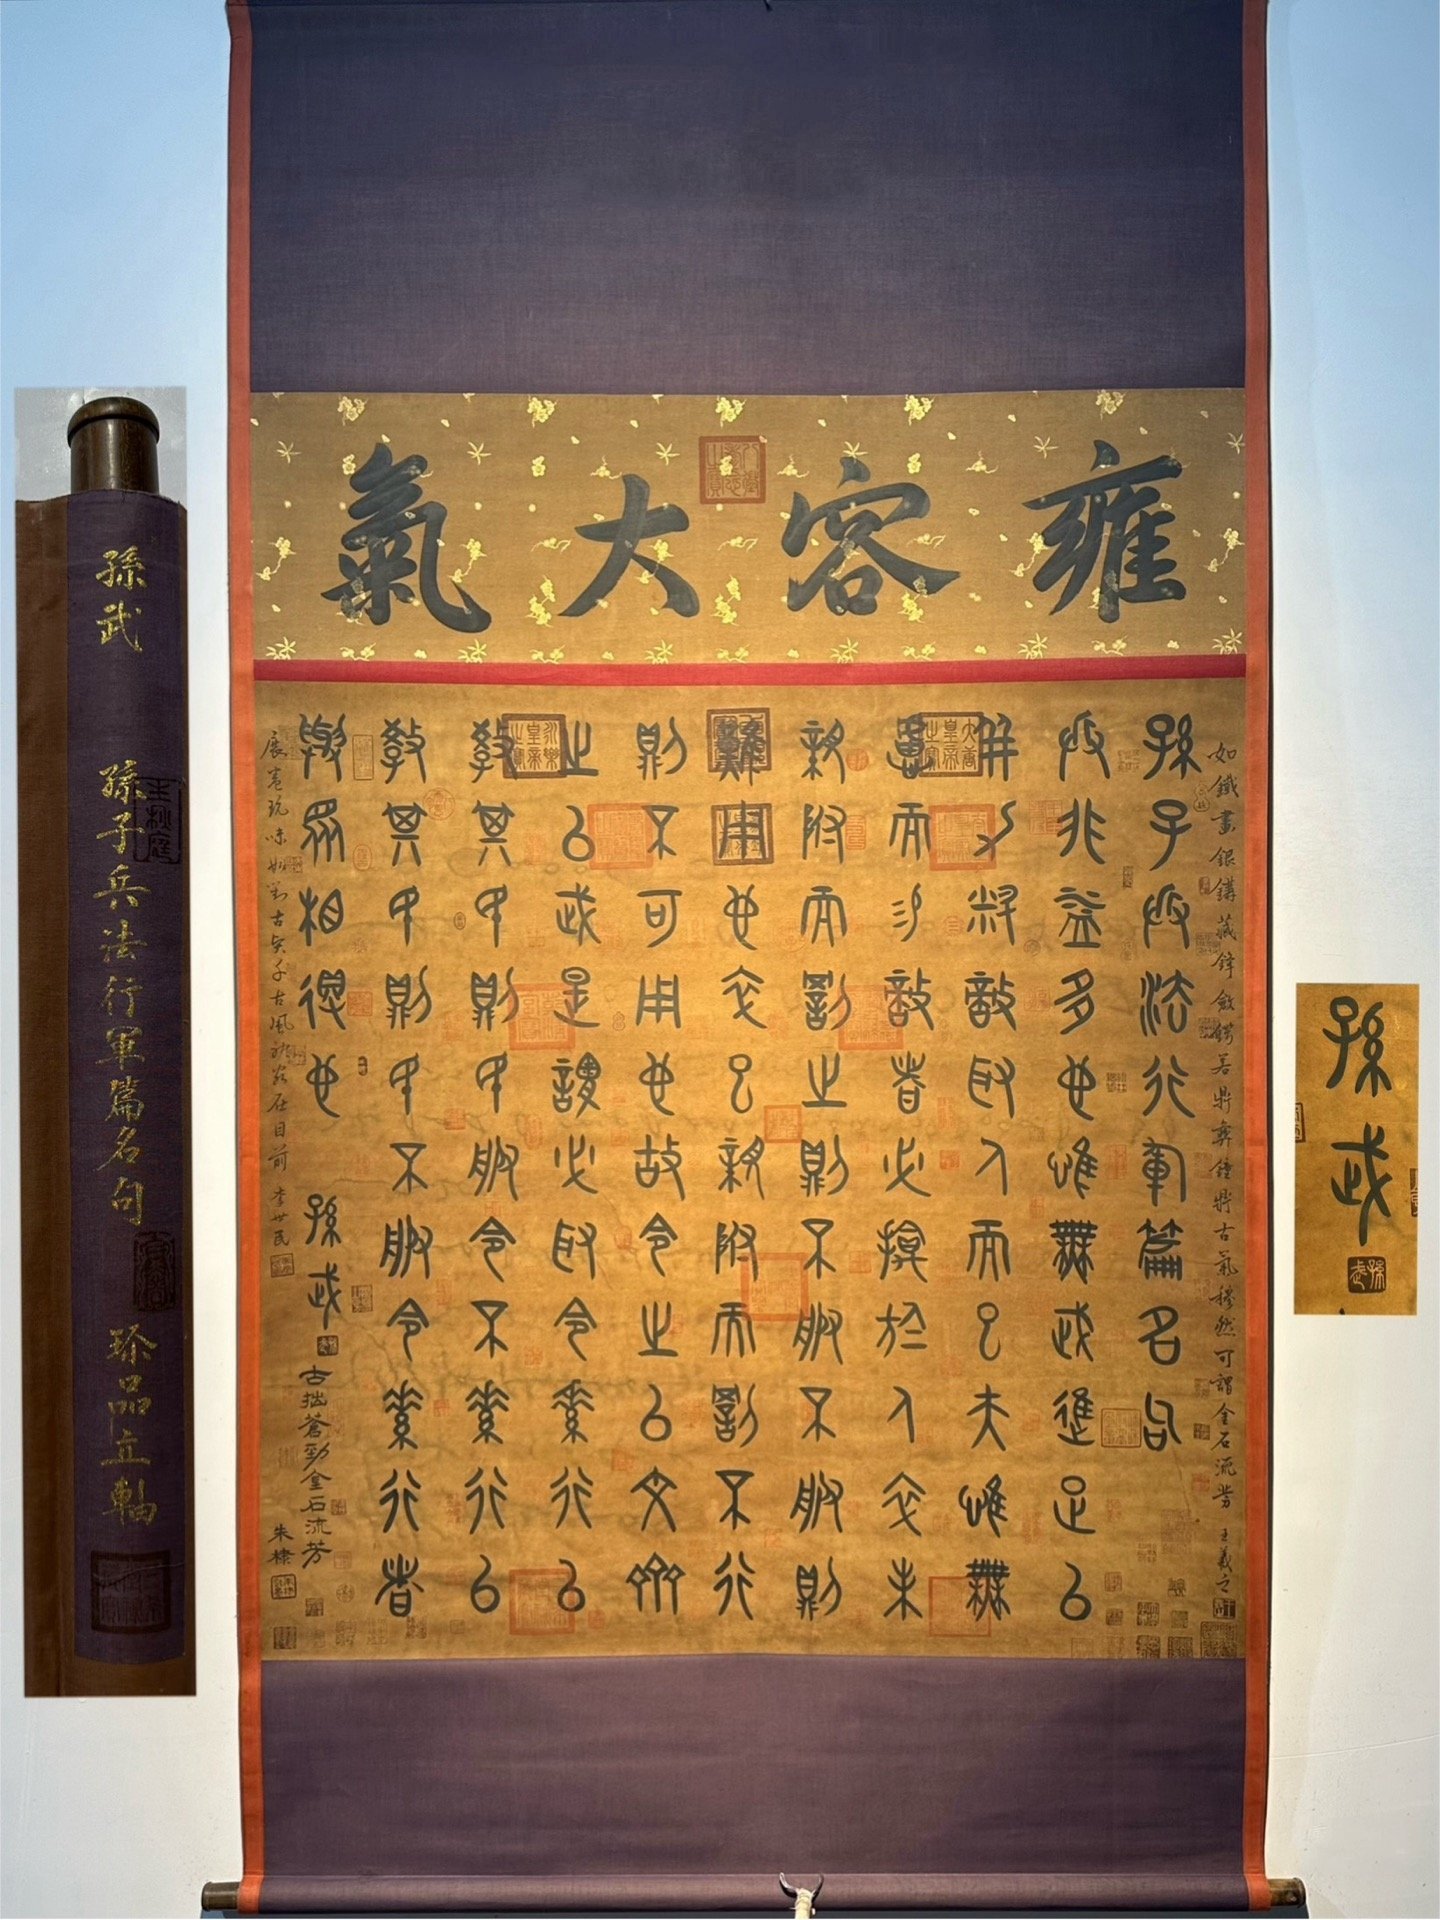 孫武 孫子兵法行軍篇名句 珍品立軸
雍容大氣
如鐵畫銀鉤藏鋒斂鍔若鼎彝鐘鼎古氣穆然可謂金石流芳 王羲之
孫子兵法行軍篇名句
兵非益多也唯無武進足以
併力料敵取人而已夫唯無
慮而易敵者必擒於人卒未
親附而罰之則不服不服則
難用也卒已親附而罰不行
則不可用也故令之以文齊
之以武是謂必取令素行以
教其民則民服令不素行以
教其民則民不服令素行者
與眾相得也 孫武
古拙蒼勁金石流芳
朱棣
展卷玩味如對古賢千古風神宛在目前 李世民
大唐皇帝之寶
永樂皇帝之寶
孫武